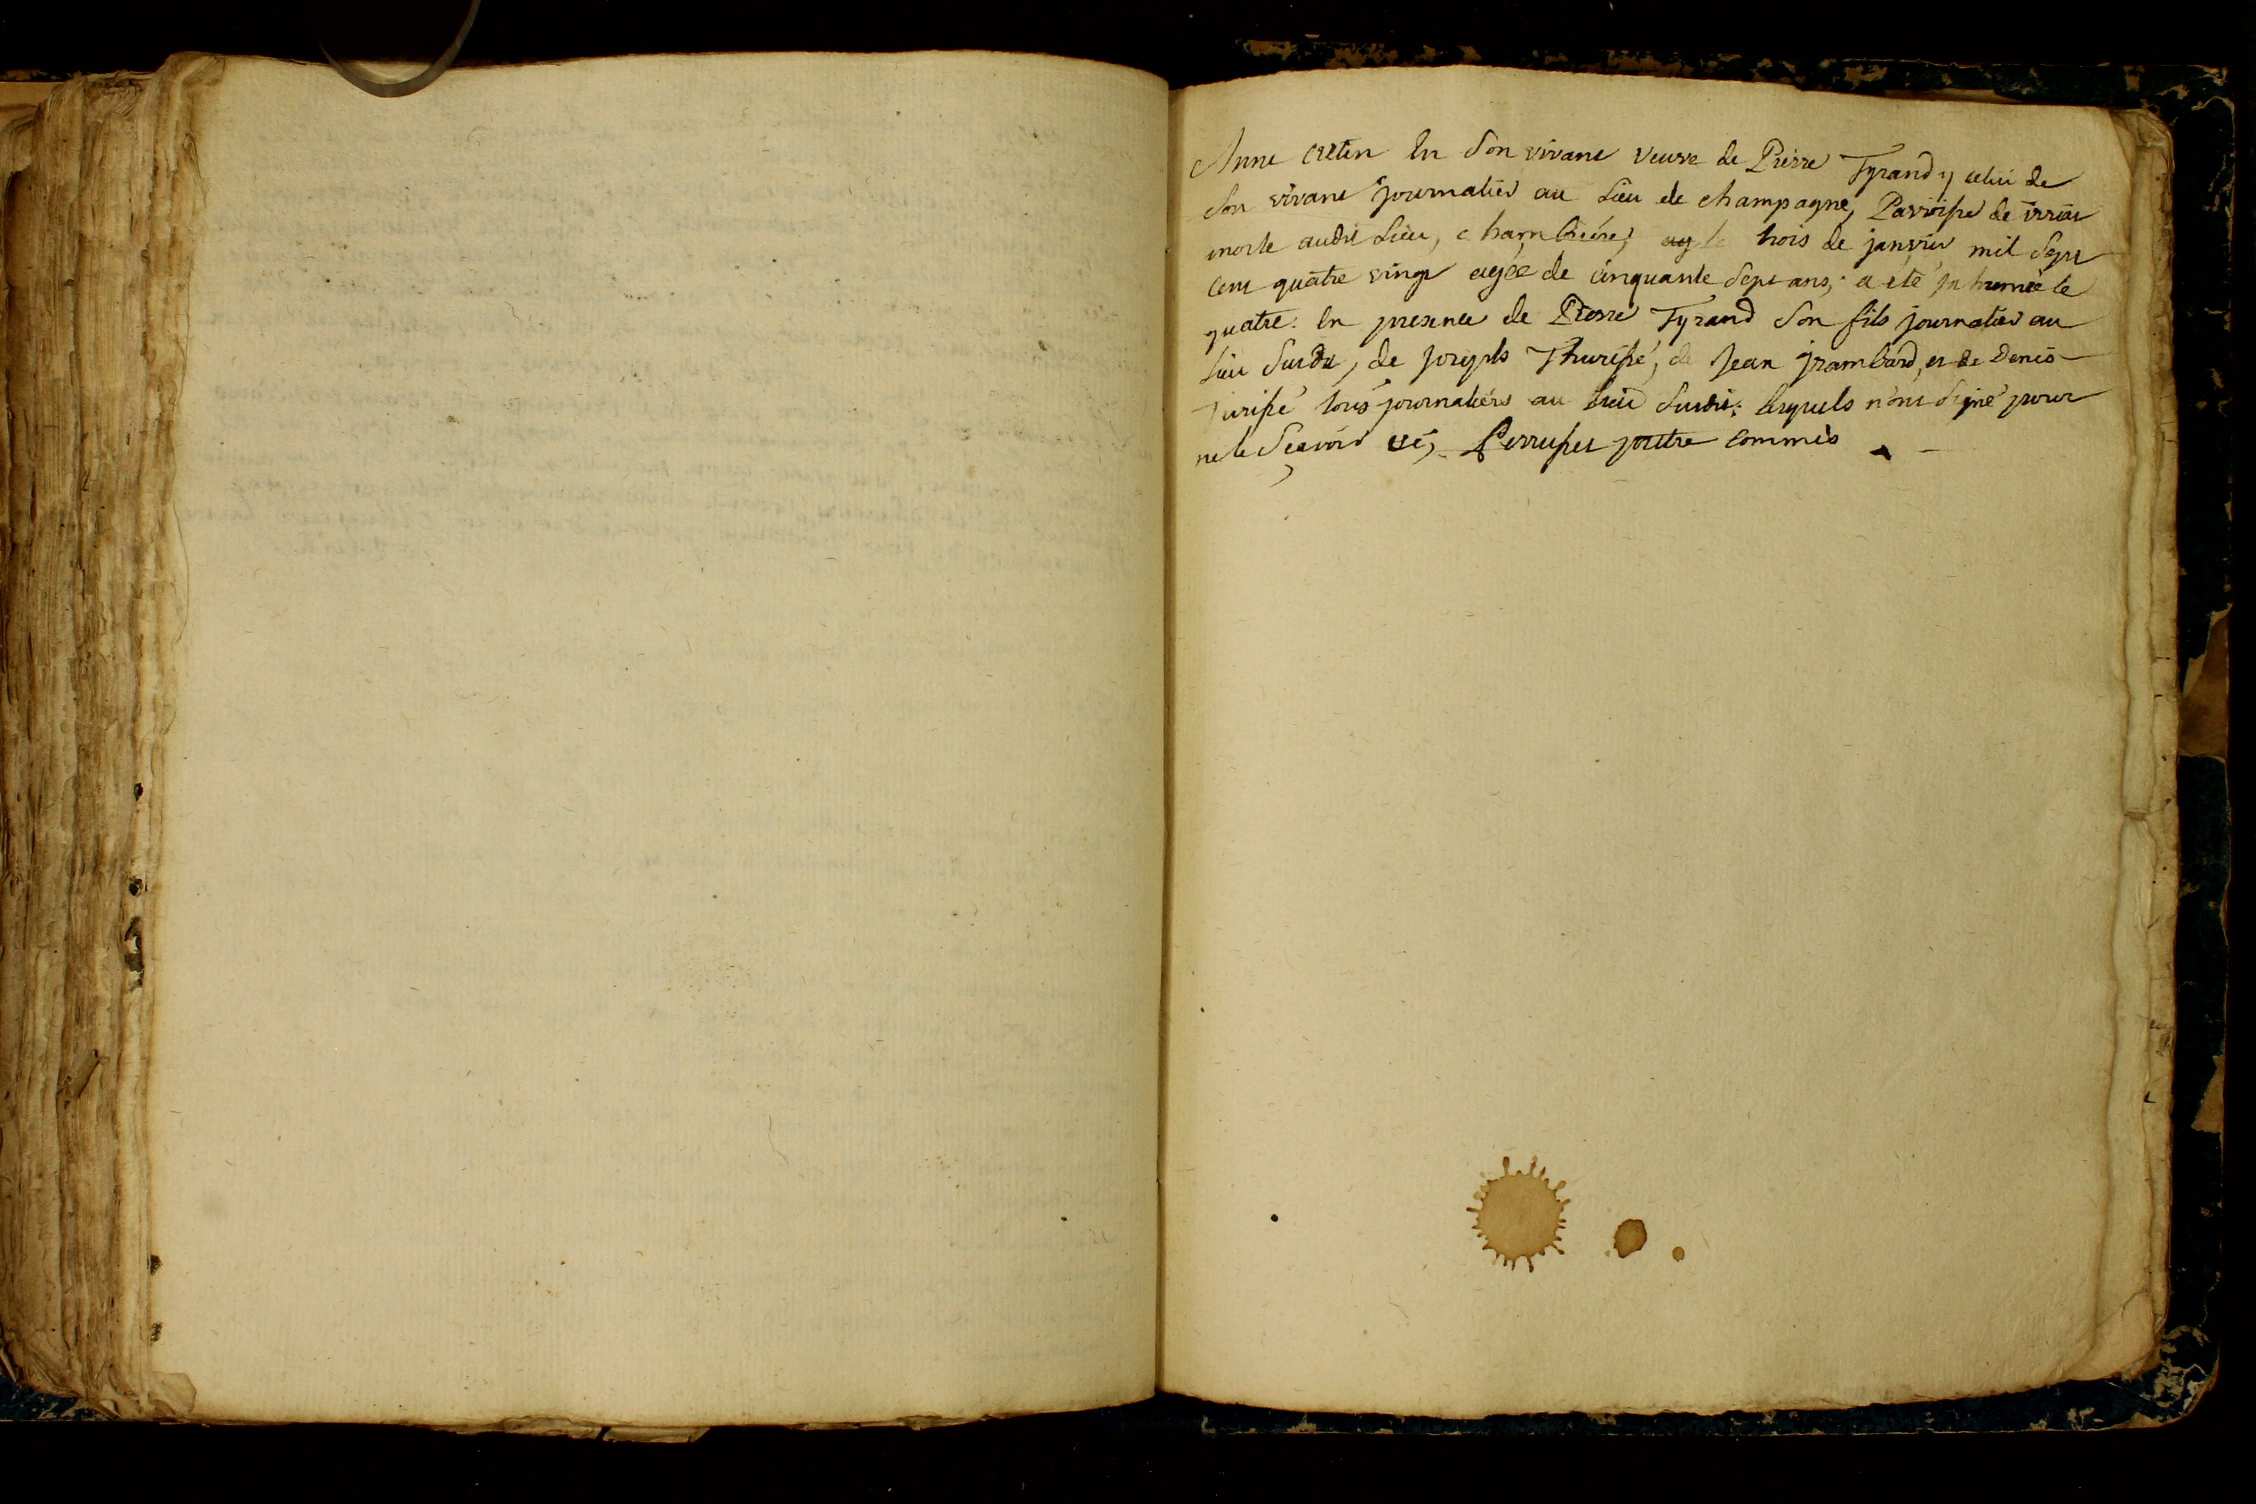 Anne cretin en son vivant veuve de Pierre Tyrand y celui de
son vivant journalier au Lieu de champagne, Parroisse de
morte audit Lieu, chambriére, le trois de janvier mil sept
cent quatre vingt agée de cinquante sept ans, a eté inhumée le
quatre. En presence de Pierre Tyrand son fils journalier au
Lieu susdit, de joseph Thurissé, de Jean jrambard, et de Denis
Turissé tous journaliers au Lieu susdit; lesquels n'ont signé pour
ne le sçavoir commis